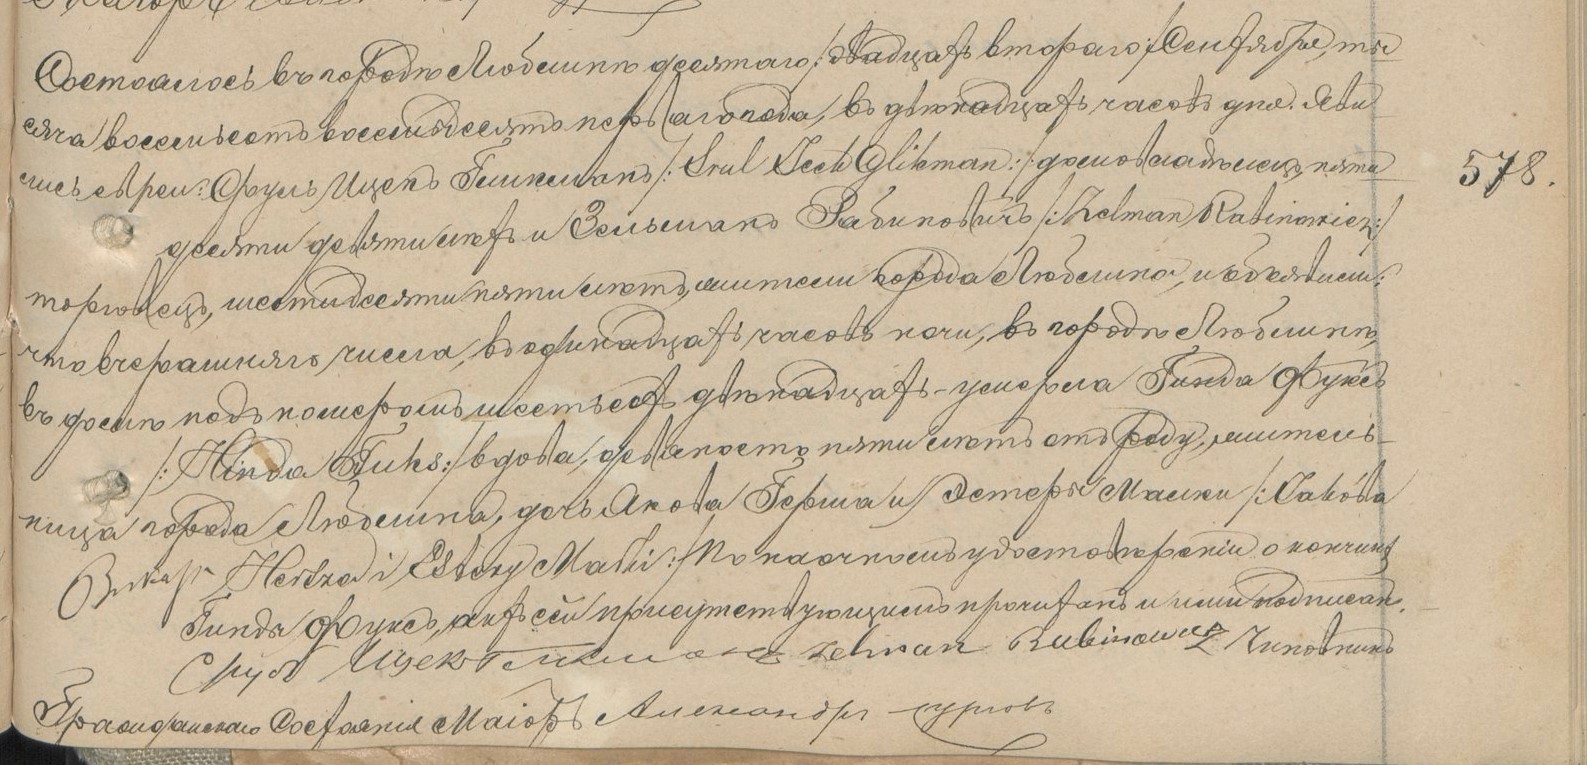 Состоялось въ городѣ Люблинѣ десятаго /двадцать втораго/ Сентября, ты
сяча восемьсотъ восемьдесятъ перваго года, въ двѣнадцать часовъ дня. Яви
лись евреи: Сруль Ицекъ Гликманъ /: Srul Icek Glikman :/ домовладѣлецъ, пяти
578.
десяти девяти лѣтъ и Зельманъ Рабиновичъ /: Zelman Rabinowicz :/
торговецъ, шестидесяти пяти лѣтъ, жители города Люблина, и объявили:
что вчерашняго числа, въ одинадцать часовъ ночи, въ городѣ Люблинѣ,
въ домѣ подъ номеромъ шестьсотъ двѣнадцать - умерла Гинда Фуксъ
/: Hinda Fuks :/ вдова, девяносто пяти лѣтъ отъ роду, житель-
ница города Люблина, дочь Якова Герша и Эстеры Малки /: Jakóba
Herszka i Estery Malki :/ По наочномъ удостовѣреніи о кончинѣ
Гинды Фуксъ, актъ сей присутствующимъ прочитанъ и ими подписан.
Сруль Ицекъ Гликманъ Zelman Rabinowicz Чиновникъ
Гражданскаго Состоянія Маіоръ Александръ